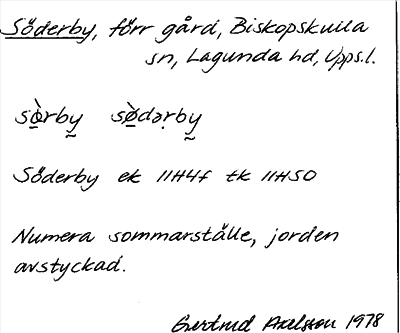 Söderby, förr gård, Biskopskulla
sn, Lagunda hd, Upps.l.
sø̀rby̰ sø̀dəṛby̰
Söderby ek 11H4f tk 11H50
Numera sommarställe, jorden
avstyckad.
Gertrud Axelsson 1978